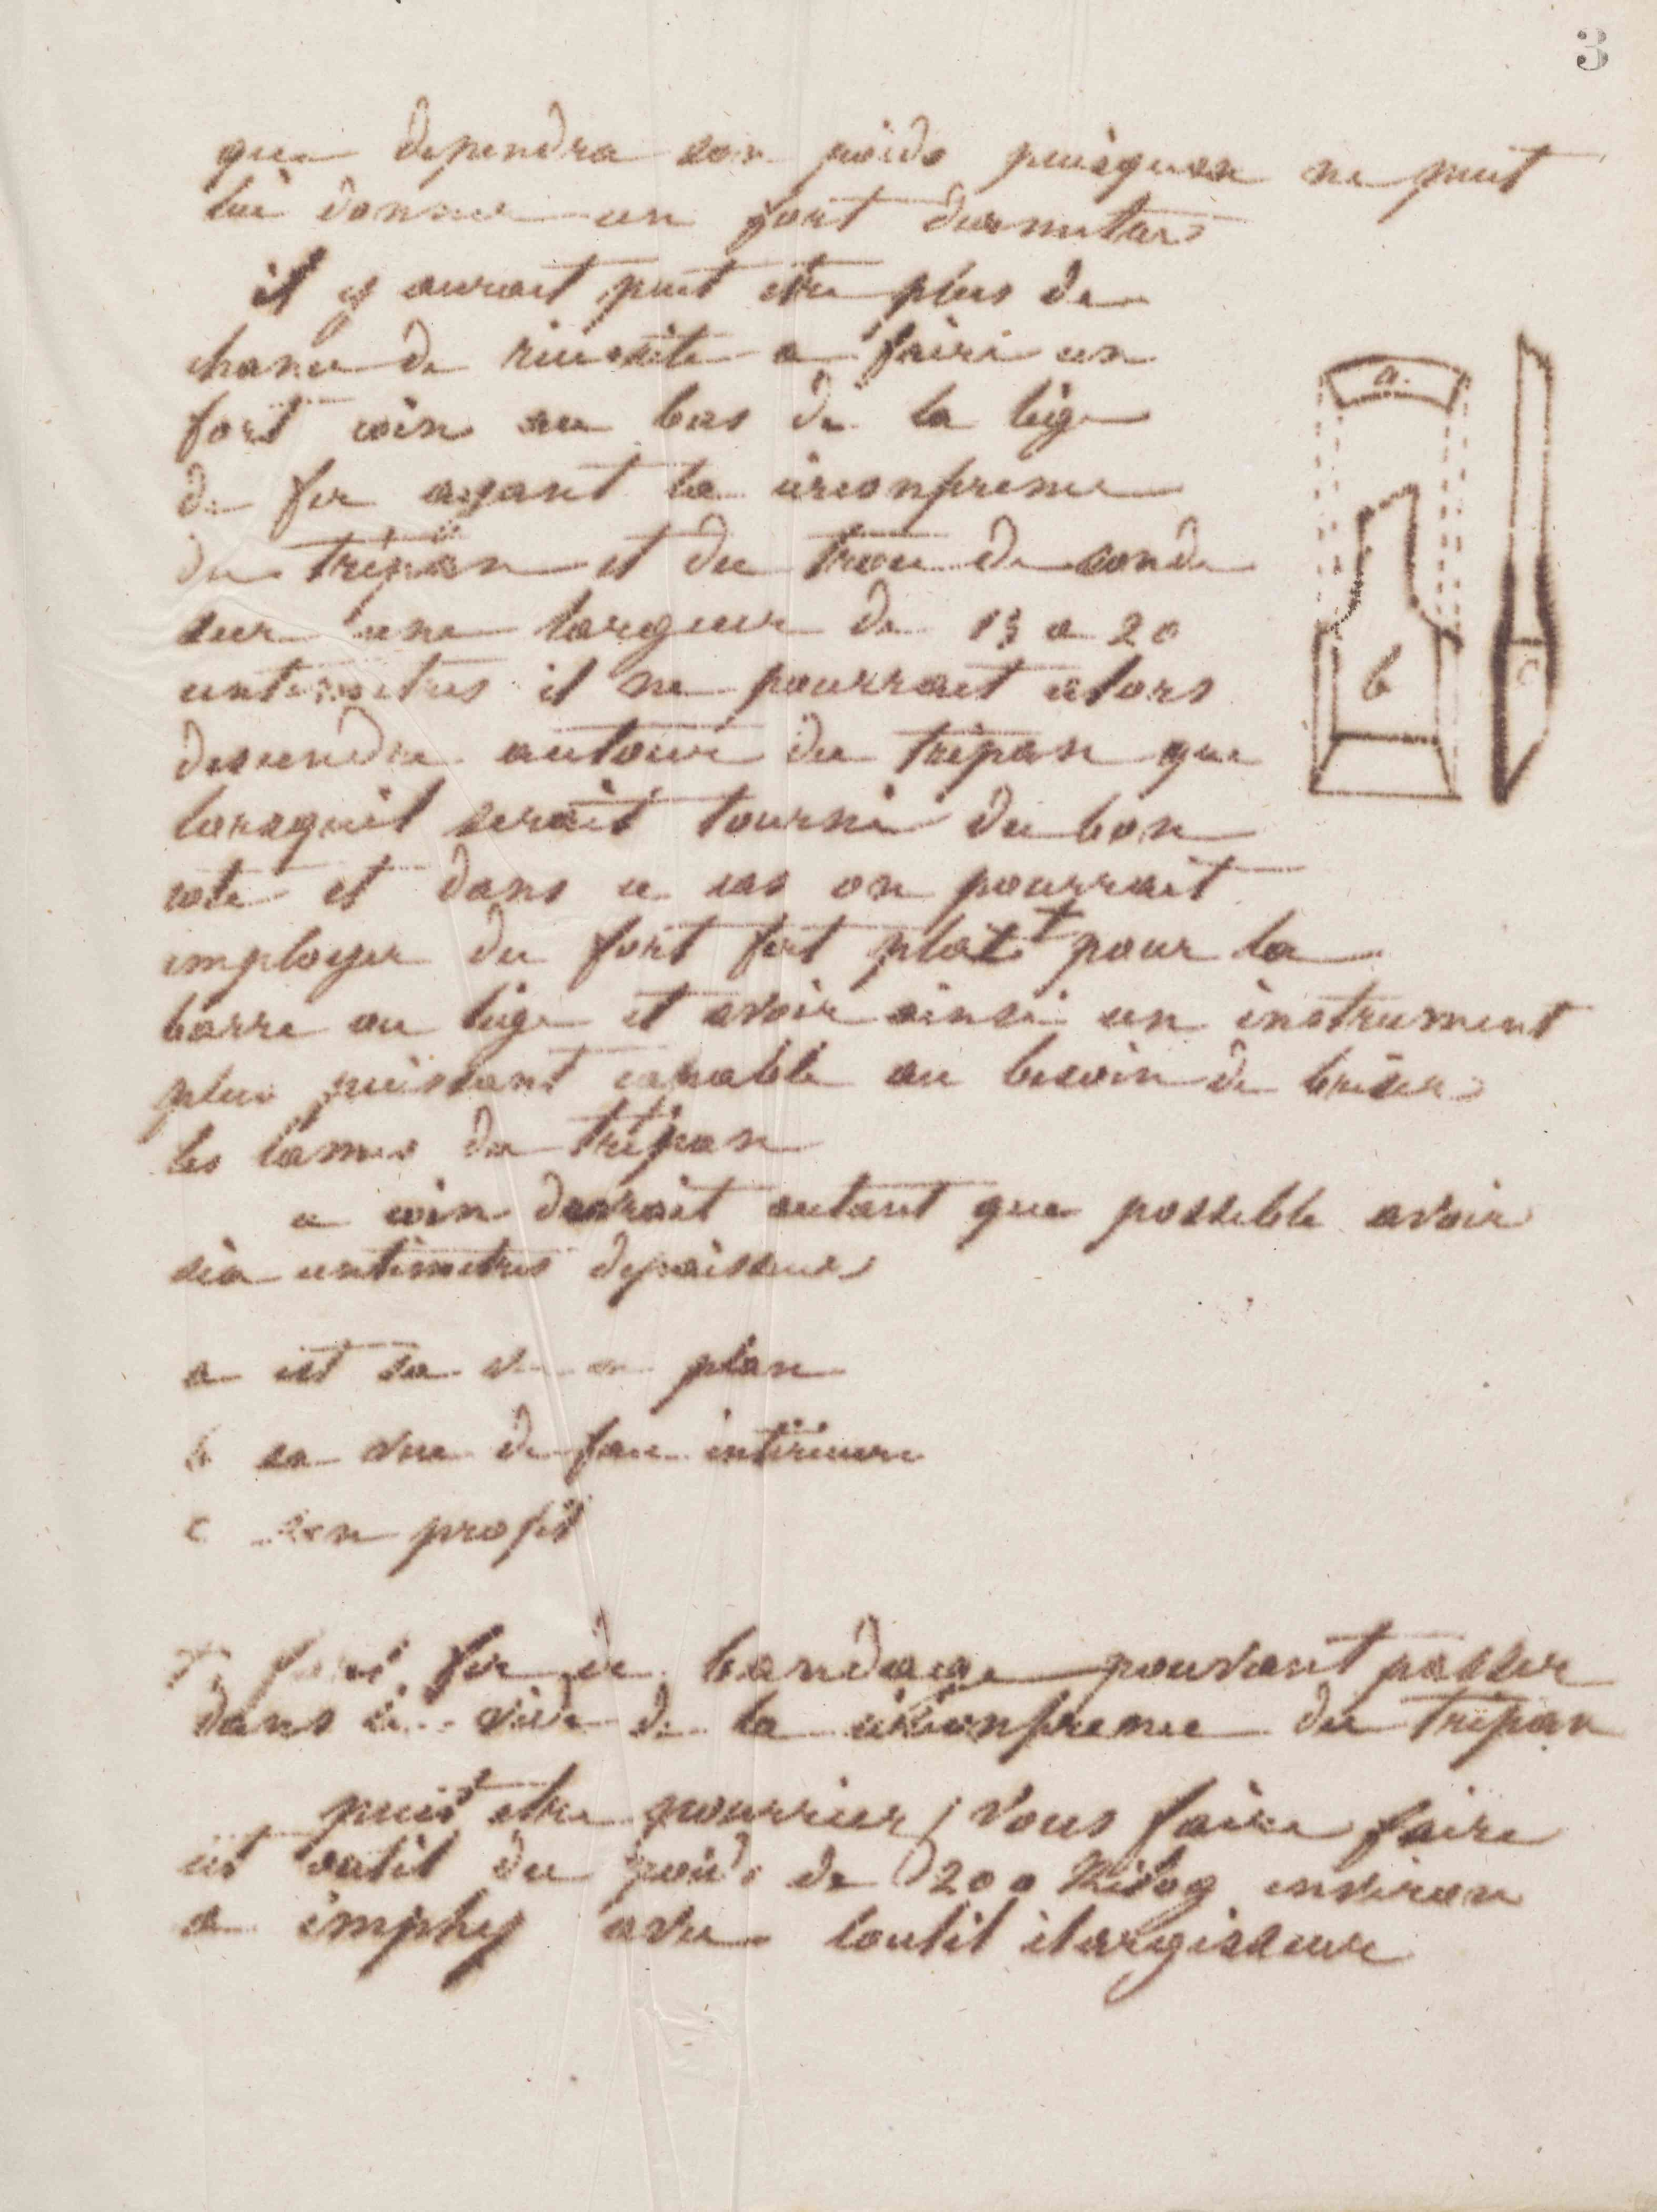 3
que dependra son poids puisquon ne peut
lui donner un fort diametare
il y aurait peut etre plus de
chance de reussite a faire un
fort coin au bas de la tige
de fer ayant la circonfrence
du trépan et du trou de sonde
sur une largeur de 15 a 20
centimetres il ne pourrait alors
descendre autour du trépan que
lorsquil serait tourné du bon
coté et dans ce cas on pourrait
employer du fort fer plat + pour la
barre ou tige et avoir ainsi un instrument
plus puissant capable au besoin de briser
les lames du trépan
ce coin devrait autant que possible avoir
six centimetres depaisseur
a.
b
c
a est sa vue en plan
b sa vue de face intérieure
c son profil
+ fort fer de bandage pouvant passer
dans le vide de la circonfrence du trépan
peut etre pourriez vous faire faire
cet outil du poids de 200 Kilog environ
a imphy avec loutil élargisseur